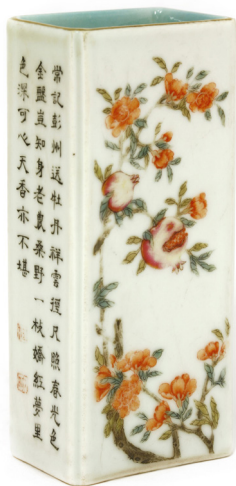 常記彭州送牡丹祥雲徑尺照春光色
金盤豈知身老農桑野一林嬌紅夢里
色深可心天香亦不堪